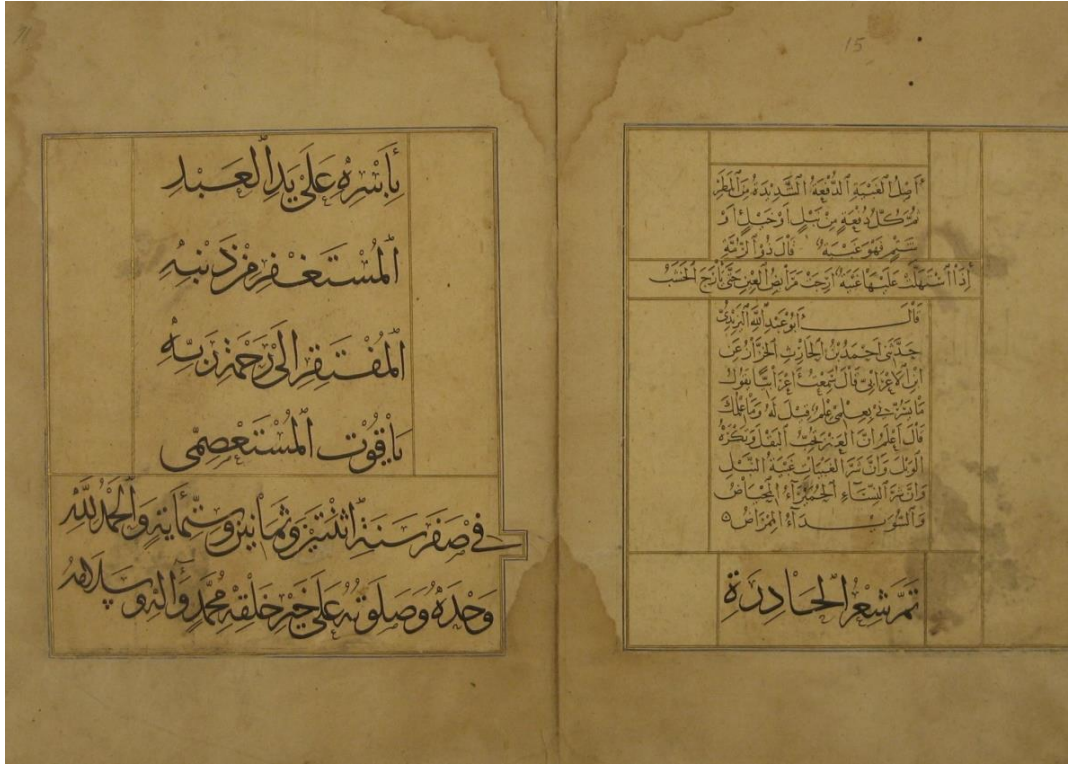 15
أَصْلُ الغَبْيَةِ الدُّفْعَةُ الشَّدِيدَةُ مِنَ المَطَرِ
ثُمَّ كُلُّ دُفْعَةٍ مِنْ نَبْلٍ أَوْ خَيْلٍ أَوْ
شَتْمٍ فَهْوَ غَبْيَةٌ قَالَ ذُو الرُّمَّةِ
إِذَا اسْتَهَلَّتْ عَلَيْهَا غَبْيَةٌ أَرِجَتْ مَرَابِضُ العِينِ حَتَّى يَأْرَجَ الخَشَبُ
قَالَ أَبُو عَبْدِ اللَّهِ اليَزِيدِيُّ
حَدَّثَنِي أَحْمَدُ بْنُ الحَارِثِ الخَزَّازُ عَنِ
ابْنِ الأَعْرَابِيِّ قَالَ سَمِعْتُ أَعْرَابِيًّا يَقُولُ
مَا بِعِلْمِي عِلْمٌ قِيلَ لَهُ وَمَا عِلْمُكَ
قَالَ أَعْلَمُ أَنَّ العَنْزَ تُحِبُّ البَقْلَ وَتَكْرَهُ
الوَبْلَ وَأَنَّ شَرَّ الغَبَيَاتِ غَبْيَةُ النَّبْلِ
وَأَنَّ شَرَّ النِّسَاءِ الحُمَيْرَاءُ المِحْيَاضُ
وَالسُّوَيْدَاءُ المِمْرَاضُ
تَمَّ شِعْرُ الْحَادِرَةِ
بِأَسْرِهِ عَلَى يَدِ الْعَبْدِ
الْمُسْتَغْفِرِ مِنْ ذَنْبِهِ
الْمُفْتَقِرِ إِلَى رَحْمَةِ رَبِّهِ
يَاقُوتِ الْمُسْتَعْصِمِي
فِي صَفَرَ سَنَةَ اثْنَتَيْنِ وَثَمَانِينَ وَسِتِّمِائَةٍ وَالْحَمْدُ لِلَّهِ
وَحْدَهُ وَصَلَوتُهُ عَلَى خَيْرِ خَلْقِهِ مُحَمَّدٍ وَآلِهِ وَسَلَامُهُ